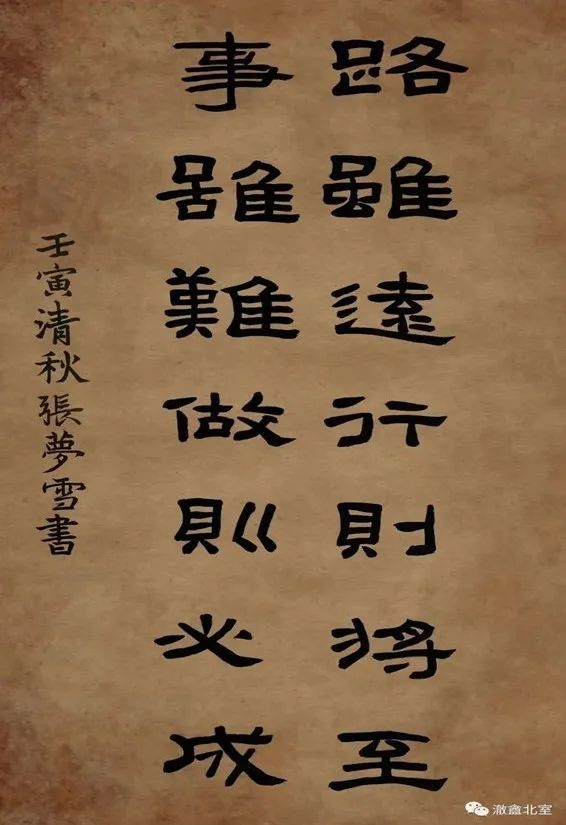 路雖遠行則将至
事雖難做則必成
壬寅清秋張夢雪書
澈鑫北室